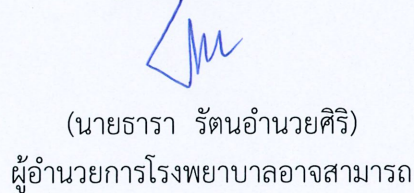 (นายธารา รัตนอำนวยศิริ)
ผู้อำนวยการโรงพยาบาลอาจสามารถ